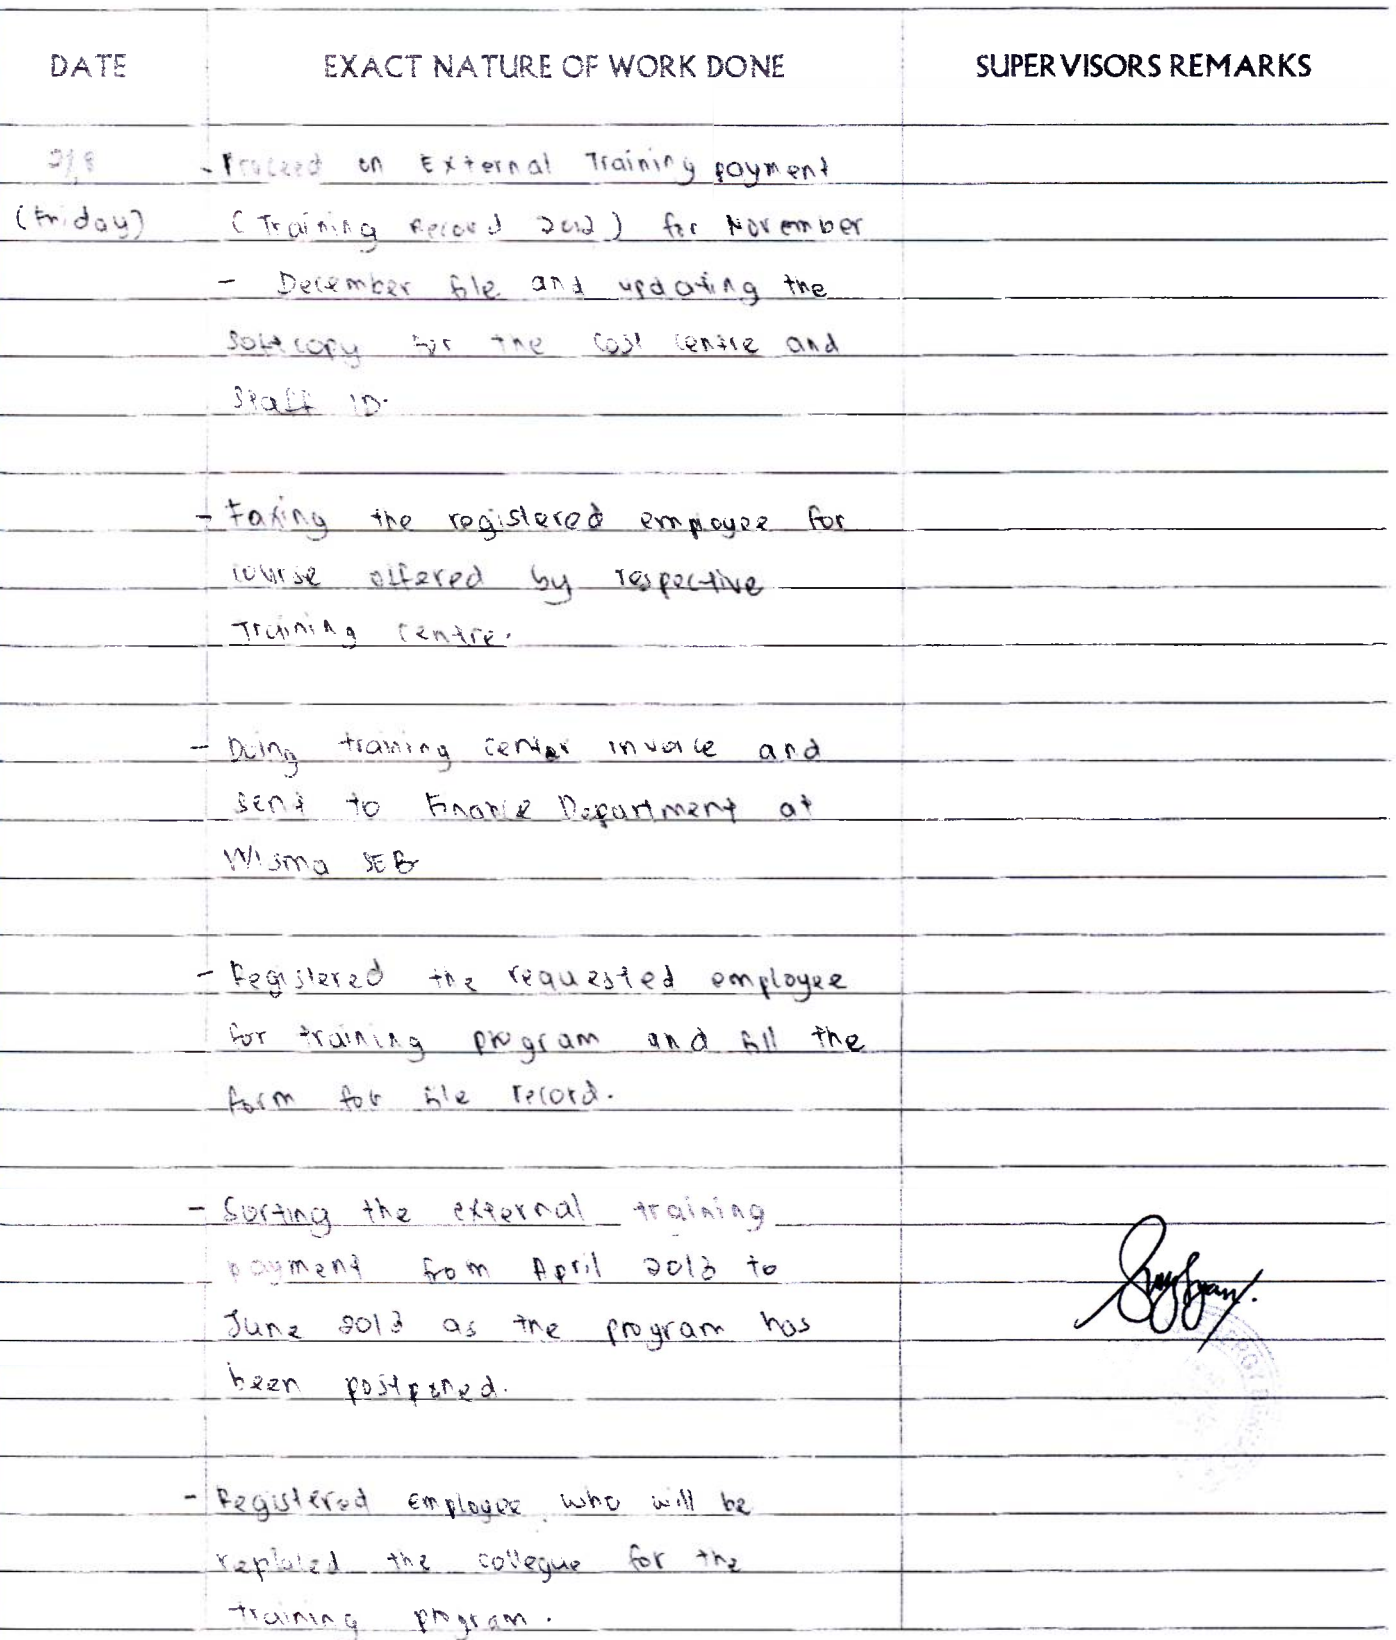 DATE EXACT NATURE OF WORK DONE SUPERVISORS REMARKS
2/8 - Proceed on External Training payment
(Friday) (Training Record 2012) for November
- December file and updating the
softcopy for the cost centre and
Staff ID.
- Faxing the registered employee for
course offered by respective
Training Centre.
- Doing training center invoice and
sent to Finance Department at
Wisma SEB
- Registered the requested employee
for training program and fill the
form for file record.
- Sorting the external training
payment from April 2013 to
June 2013 as the program has
been postponed.
- Registered employee who will be
replaced the collegue for the
training program.